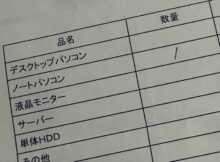 品名 数量
デスクトップパソコン /
ノートパソコン
液晶モニター
サーバー
単体HDD
その他